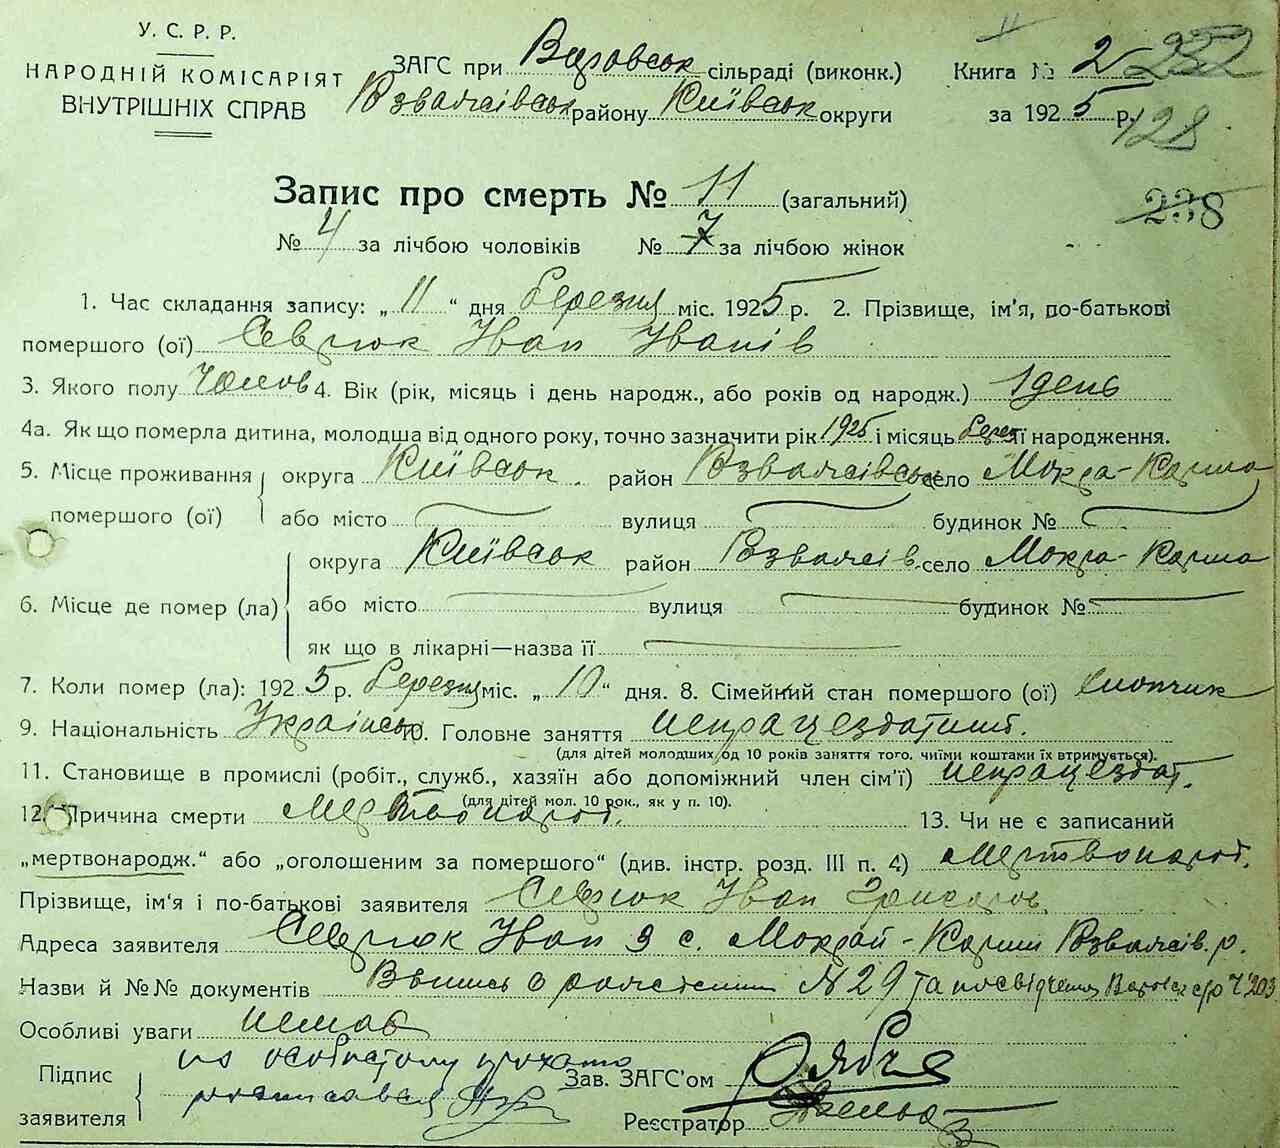 У. С. Р. Р.
НАРОДНІЙ КОМІСАРІЯТ
ВНУТРІШНІХ СПРАВ
ЗАГС при сільраді (виконк.)
району Київськ округи
Книга № 2 252
за 1925 р. 128
238
Запис про смерть № 11 (загальний)
№ 4 за лічбою чоловіків № 7 за лічбою жінок
1. Час складання запису: „ 11 “ дня березня міс. 1925 р. 2. Прізвище, ім'я, по-батькові
помершого (ої) Севрюк Иван Іванів
3. Якого полу Чолов 4. Вік (рік, місяць і день народж., або років од народж.) 1 день
4а. Як що померла дитина, молодша від одного року, точно зазначити рік 1925 і місяць берез її народження.
5. Місце проживання помершого (ої) округа Київськ. район Розважівськ село Мокра-Карма
або місто вулиця будинок №
6. Місце де помер (ла) округа Київськ район Розважів. село Мокра-Карма
або місто вулиця будинок №
як що в лікарні—назва її
7. Коли помер (ла): 1925 р. березня міс. „ 10 “ дня. 8. Сімейний стан помершого (ої) хлопчик
9. Національність Українськ 10. Головне заняття непрацездатний.
(для дітей молодших од 10 років заняття того, чиїми коштами їх втримується).
11. Становище в промислі (робіт., служб., хазяїн або допоміжний член сім'ї) непрацездат.
(для дітей мол. 10 рок., як у п. 10).
12. Причина смерти Мертвонарод. 13. Чи не є записаний
„мертвонародж.“ або „оголошеним за помершого“ (див. інстр. розд. III п. 4) Мертвонарод.
Прізвище, ім'я і по-батькові заявителя Севрюк Иван
Адреса заявителя Севрюк Иван з с. Мокрой-Карми Розважів. р.
Назви й №№ документів о № 29 та посвідчення с/р Ч 203
Особливі уваги немає
Підпис заявителя по особистому
росписався
Зав. ЗАГС'ом
Реєстратор